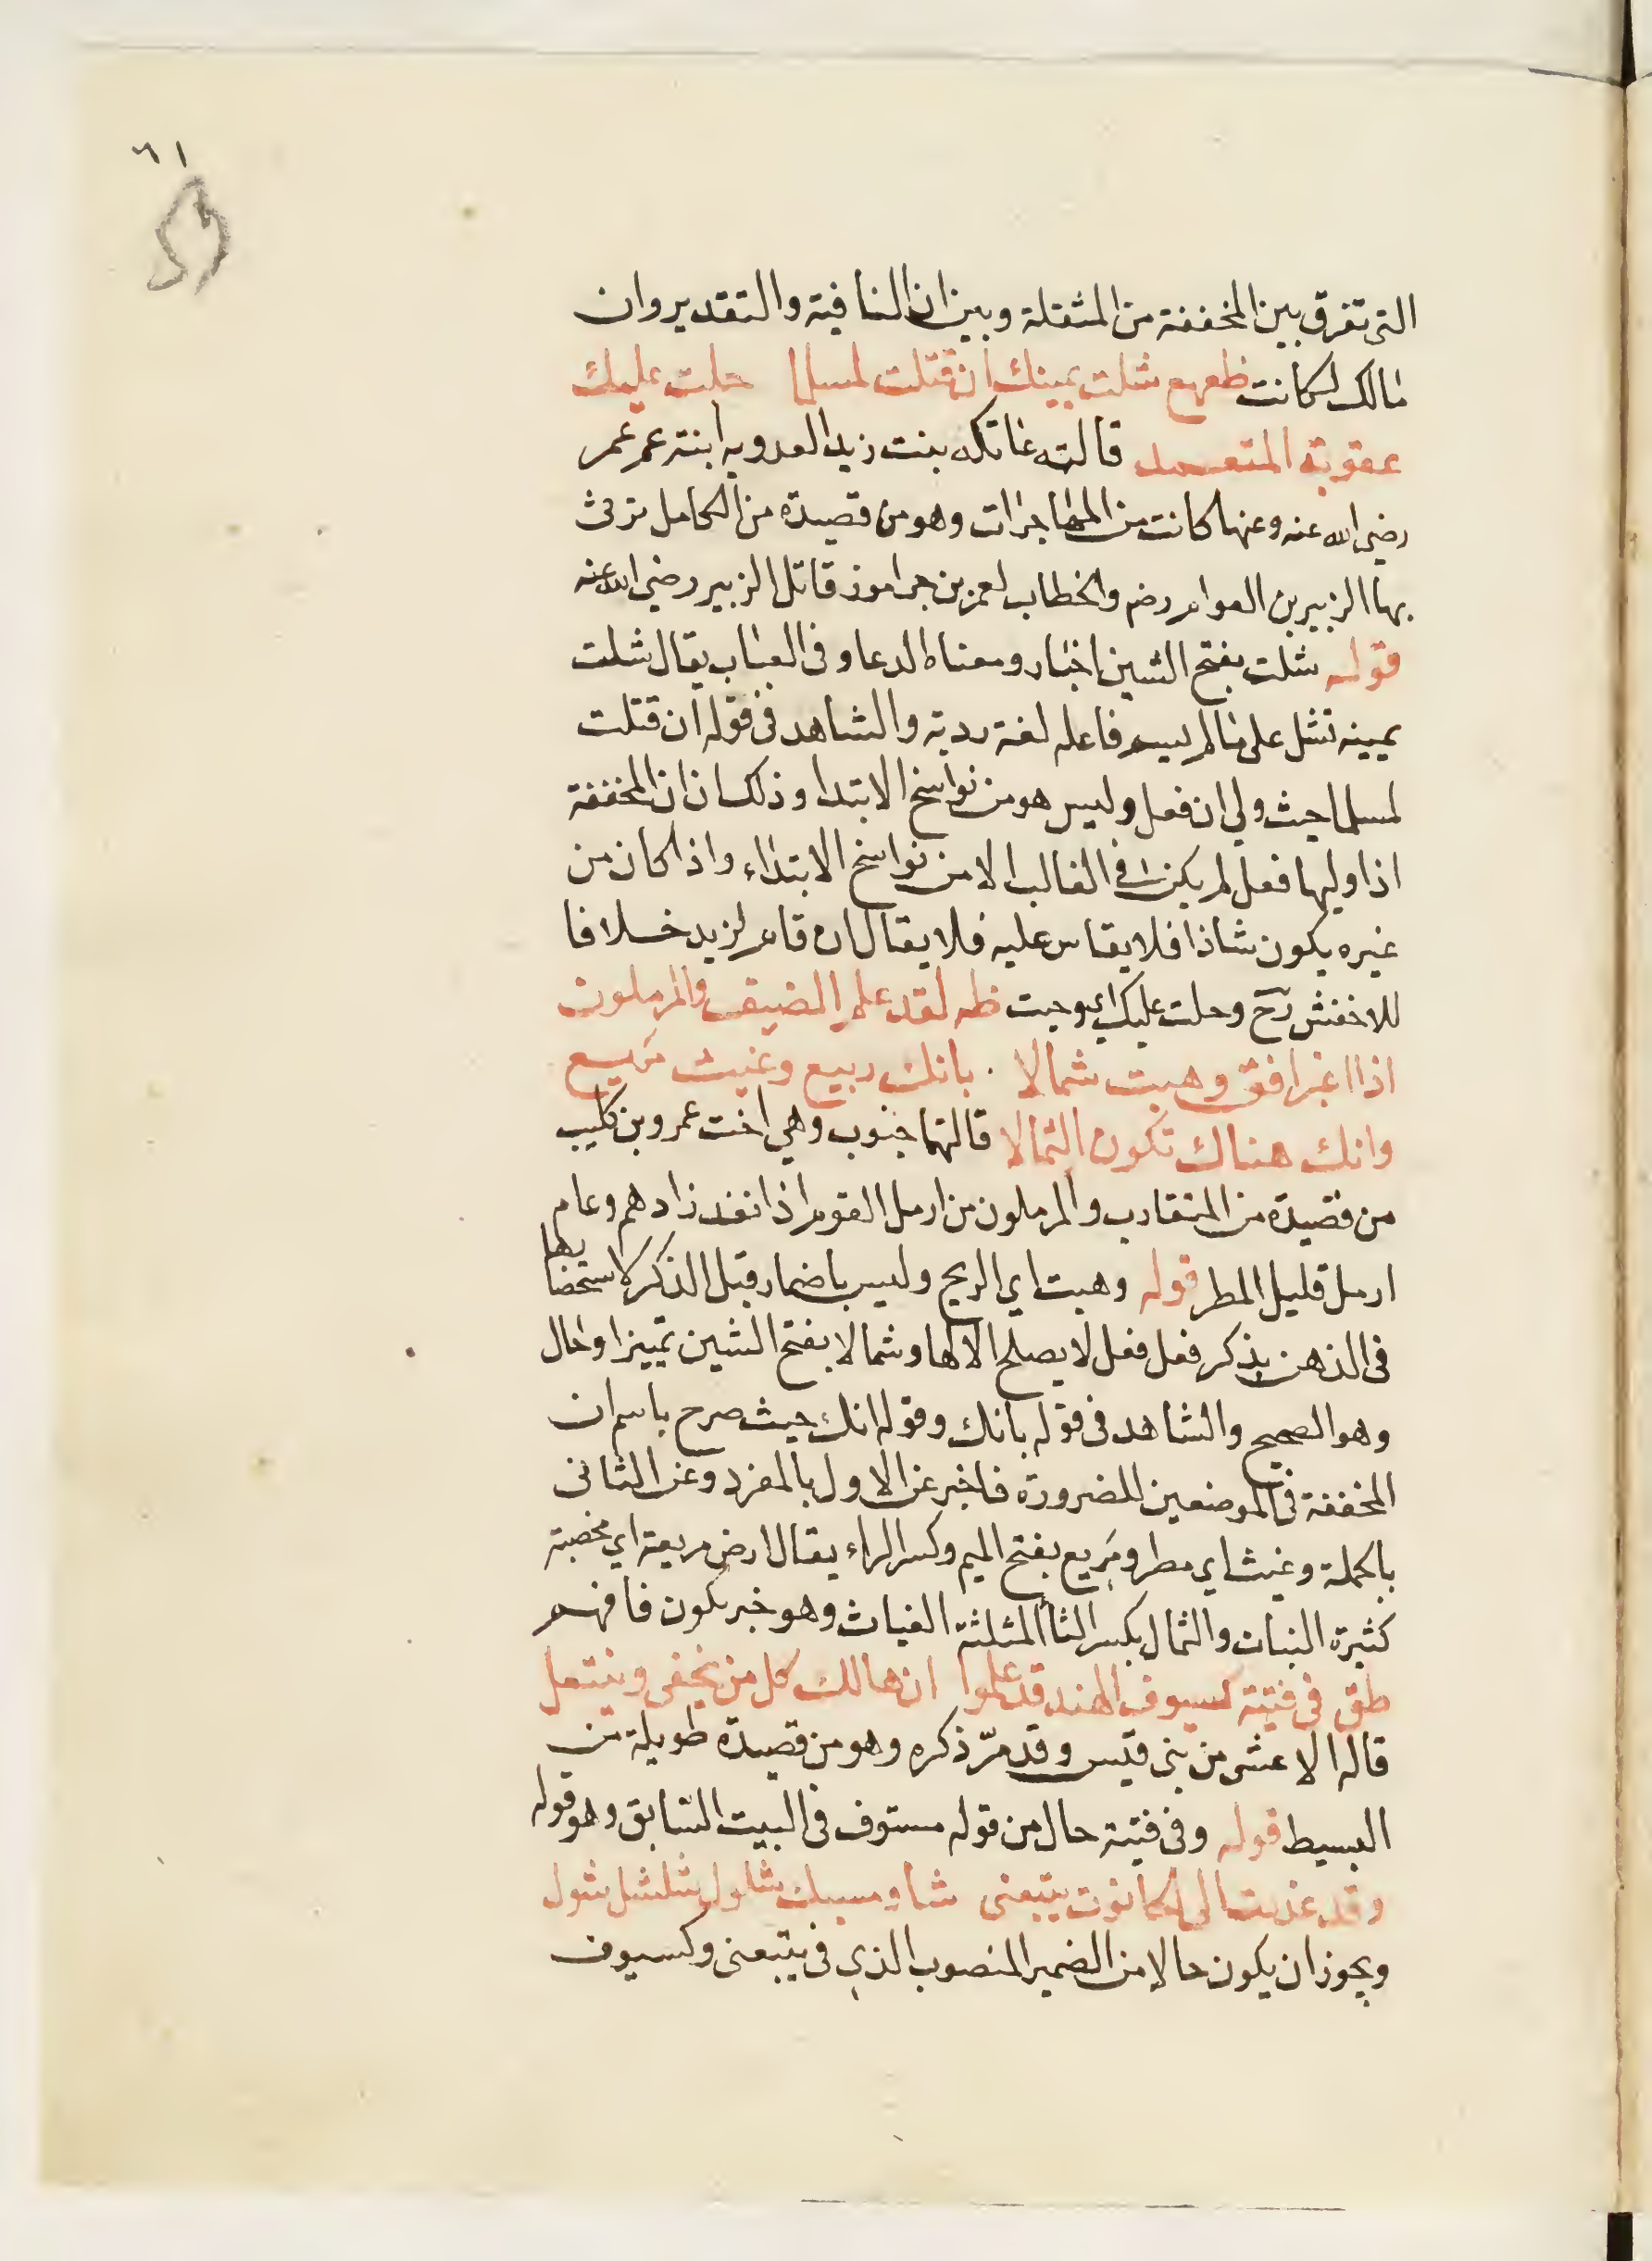 ٦١
التى تفرق بين المخففة من المثقلة وبين ان النافية والتقدير وان
مالك لكانت ظقهع شلت يمينك ان قتلت لمسلما حلت عليك
عقوبة المتعمد قالته عاتكه بنت زيد العدويه ابنة عم عمر
رضى الله عنه وعنها كانت من المهاجرات وهو من قصيدة من الكامل ترثى
بها الزبير بن العوام رضه والخطاب لعمرو بن جرموز قاتل الزبير رضي الله عنه
قوله شلت بفتح الشين اخبار ومعناه الدعا وفى العباب يقال شلت
يمينه تشل على ما لم يسم فاعله لغة ردية والشاهد فى قوله ان قتلت
لمسلما حيث ولي ان فعل وليس هو من نواسخ الابتدا وذلك ان ان المخففة
اذا وليها فعل لم يكن فى الغالب الا من نواسخ الابتداء واذا كان من
غيره يكون شاذا فلا يقاس عليه فلا يقال ان قام لزيد خلافا
للاخفش رح وحلت عليك اي وجبت ظه لقد علم الضيف والمرملون
اذا اغبر افق وهبت شمالا . بانك ربيع وغيث مريع
وانك هناك تكون الثمالا قالتها جنوب وهي اخت عمرو بن كليب
من قصيدة من المتقارب والمرملون من ارمل القوم اذا نفد زادهم وعام
ارمل قليل المطر قوله وهبت اي الريح وليس باضمار قبل الذكر لاستحضارها
فى الذهن بذكر فعل فعل لا يصلح الا لها وشمالا بفتح الشين تمييز او حال
وهو الصحيح والشاهد فى قوله بانك وقوله انك حيث صرح باسم ان
المخففة فى الموضعين للضرورة فاخبر عن الاول بالمفرد وعن الثانى
بالجملة وغيث اي مطر ومَرِيع بفتح الميم وكسر الراء يقال ارض مريعة اي مخصبة
كثيرة النبات والثمال بكسر الثا المثلثة الغياث وهو خبر تكون فافهم
طق فى فتية كسيوف الهند قد علموا ان هالك كل من يحفى وينتعل
قاله الاعشى من بنى قيس وقد مرّ ذكره وهو من قصيدة طويلة من
البسيط قوله وفى فتية حال من قوله مستوف فى البيت السّابق وهو قوله
وقد غدوت الى الحانوت يتبعنى شاو مسيك شلول شلشل شول
ويجوز ان يكون حالا من الضمير المنصوب الذي فى يتبعنى وكسيوف